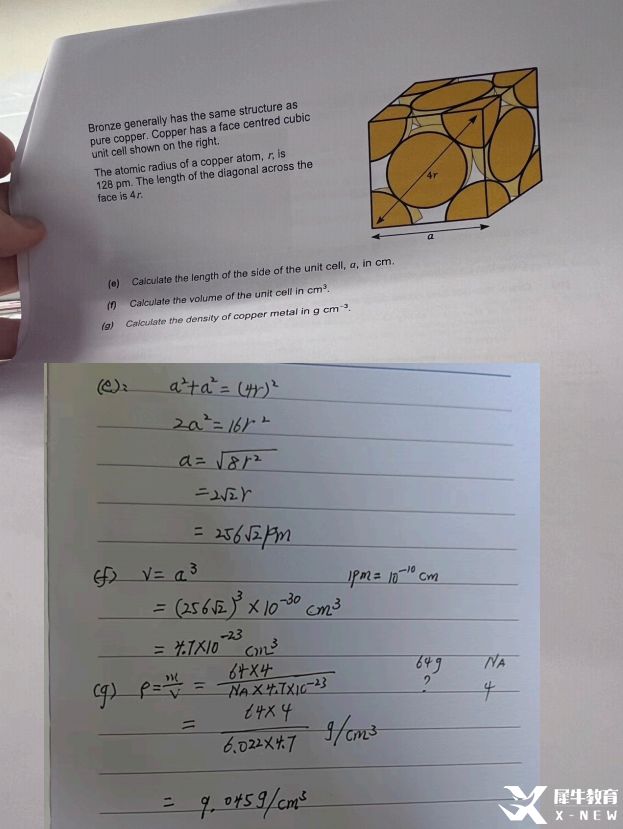 Bronze generally has the same structure as
pure copper. Copper has a face centred cubic
unit cell shown on the right.
The atomic radius of a copper atom, r, is
128 pm. The length of the diagonal across the
face is 4r.
4r
a
(e) Calculate the length of the side of the unit cell, a, in cm.
(f) Calculate the volume of the unit cell in cm³.
(g) Calculate the density of copper metal in g cm⁻³.
(e): a²+a² = (4r)²
2a² = 16r²
a = √8r²
= 2√2r
= 256√2 pm
(f) V = a³ 1pm = 10⁻¹⁰ cm
= (256√2)³ × 10⁻³⁰ cm³
= 4.7×10⁻²³ cm³
(g) ρ = m/V = 64×4 / NA×4.7×10⁻²³ 64g NA
? 4
= 64×4 / 6.022×4.7 g/cm³
= 9.045g/cm³
犀牛教育
X-NEW